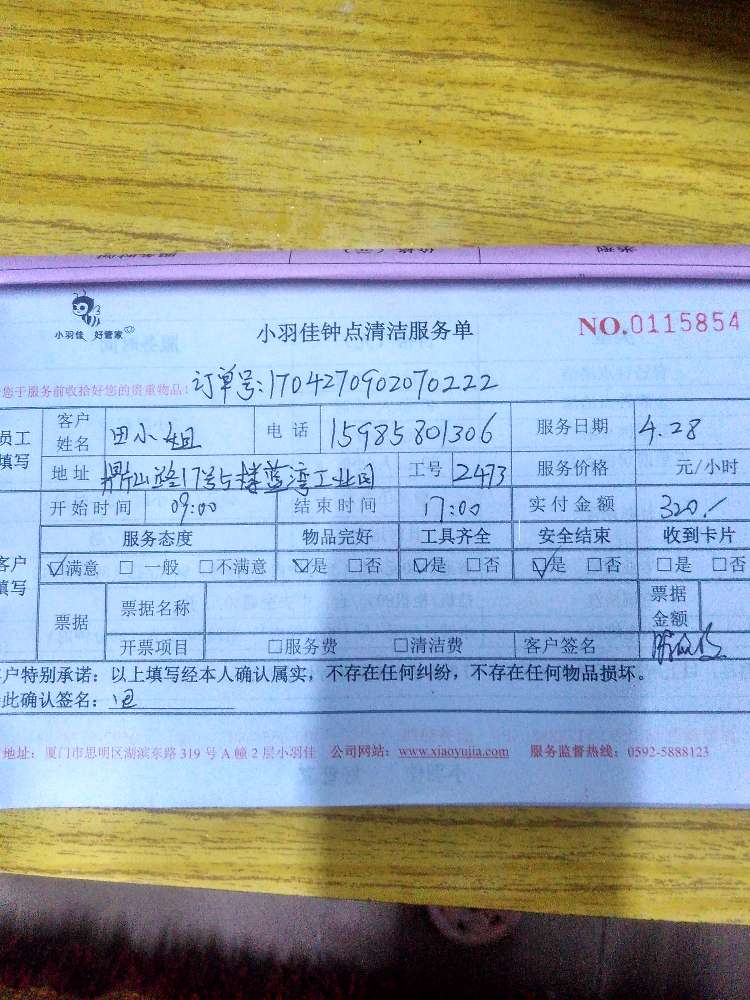 小羽佳 好管家
小羽佳钟点清洁服务单
NO.0115854
您于服务前收拾好您的贵重物品! 订单号:1704270902070222
员工填写 客户姓名 田小姐 电话 15985801306 服务日期 4.28
地址 鼎山路17号与 蓝湾工业园 工号 2473 服务价格 元/小时
开始时间 09:00 结束时间 17:00 实付金额 320./
客户填写 服务态度 物品完好 工具齐全 安全结束 收到卡片
☑满意 □一般 □不满意 ☑是 □否 ☑是 □否 ☑是 □否 □是 □否
票据 票据名称 票据金额
开票项目 □服务费 □清洁费 客户签名
户特别承诺：以上填写经本人确认属实，不存在任何纠纷，不存在任何物品损坏。
此确认签名：田
地址：厦门市思明区湖滨东路 319 号 A 幢 2 层小羽佳 公司网站：www.xiaoyujia.com 服务监督热线：0592-5888123